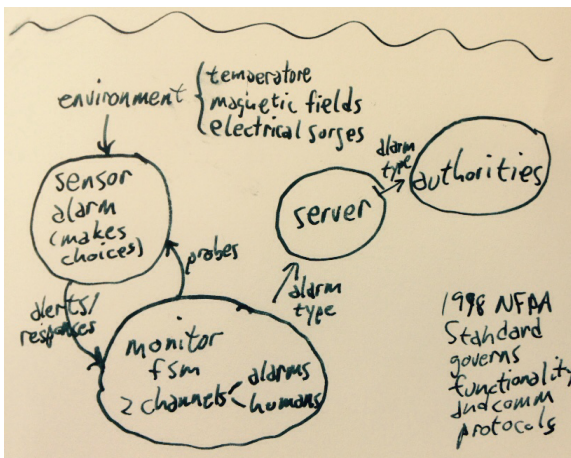 environment
temperatore
magnetic fields
electrical sorges
sensor
alarm
(makes
choices)
probes
alerts/
responses
monitor
fsm
2 channels
alarms
humans
alarm
type
server
alarm
type
authorities
1998 NFPA
Standard
governs
functionality
and comm
protocols